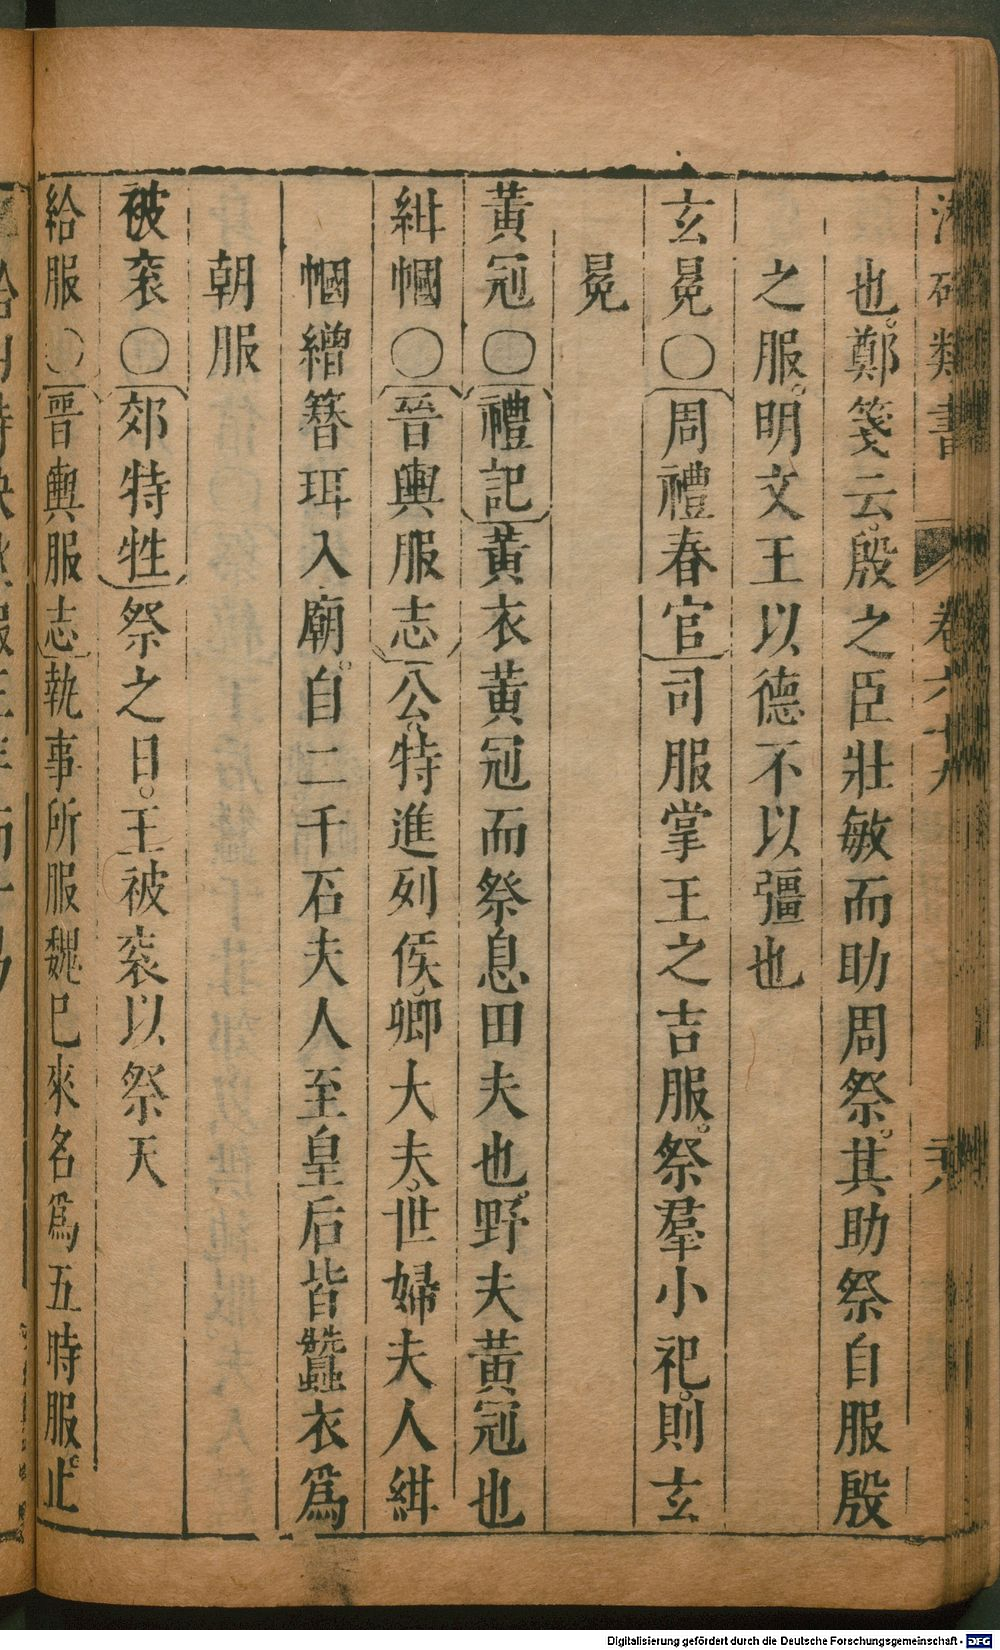 類書 卷六十九
也。鄭箋云。殷之臣壯敏而助周祭。其助祭自服殷
之服。明文王以德不以彊也
玄冕〇周禮春官司服掌王之吉服。祭羣小祀。則玄
冕
黃冠〇禮記黃衣黃冠而祭息田夫也。野夫黃冠也
紺幗〇晉輿服志公。特進列侯。卿大夫。世婦夫人紺
幗繒簪珥入廟。自二千石夫人至皇后皆蠶衣爲
朝服
被衮〇郊特牲祭之日。王被衮以祭天
給服〇晉輿服志執事所服魏巳來名爲五時服。止
Digitalisierung gefördert durch die Deutsche Forschungsgemeinschaft - DFG